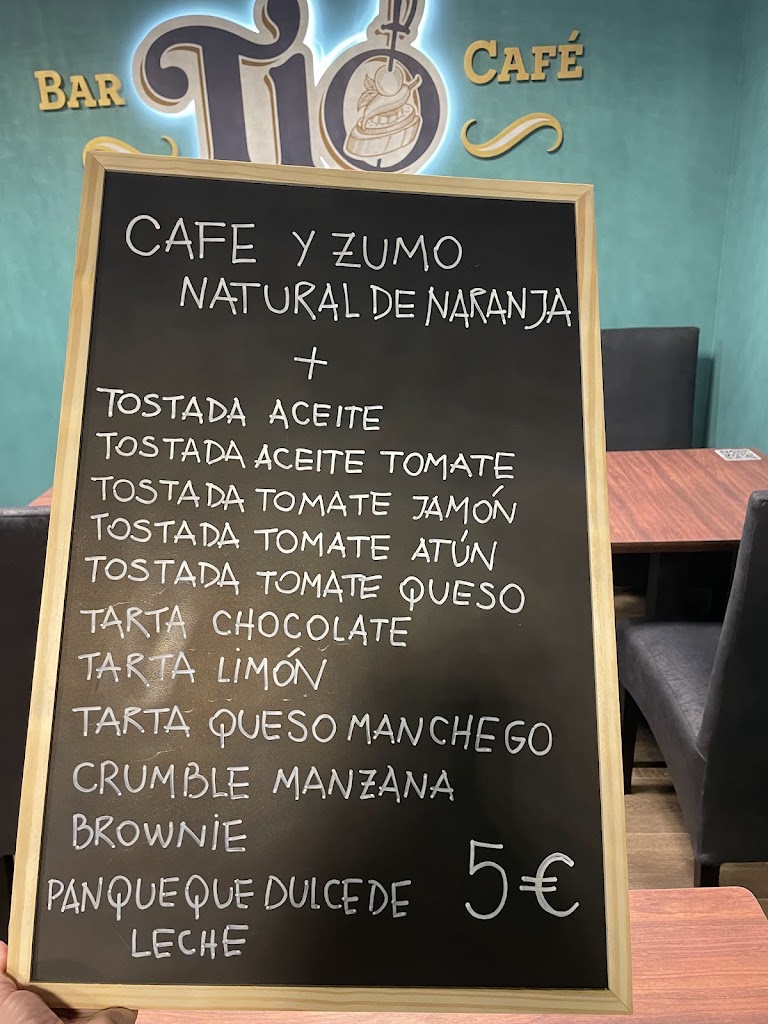 BAR TIO CAFÉ
CAFE Y ZUMO
NATURAL DE NARANJA
+
TOSTADA ACEITE
TOSTADA ACEITE TOMATE
TOSTADA TOMATE JAMÓN
TOSTADA TOMATE ATÚN
TOSTADA TOMATE QUESO
TARTA CHOCOLATE
TARTA LIMÓN
TARTA QUESO MANCHEGO
CRUMBLE MANZANA
BROWNIE
PANQUEQUE DULCE DE
LECHE
5€